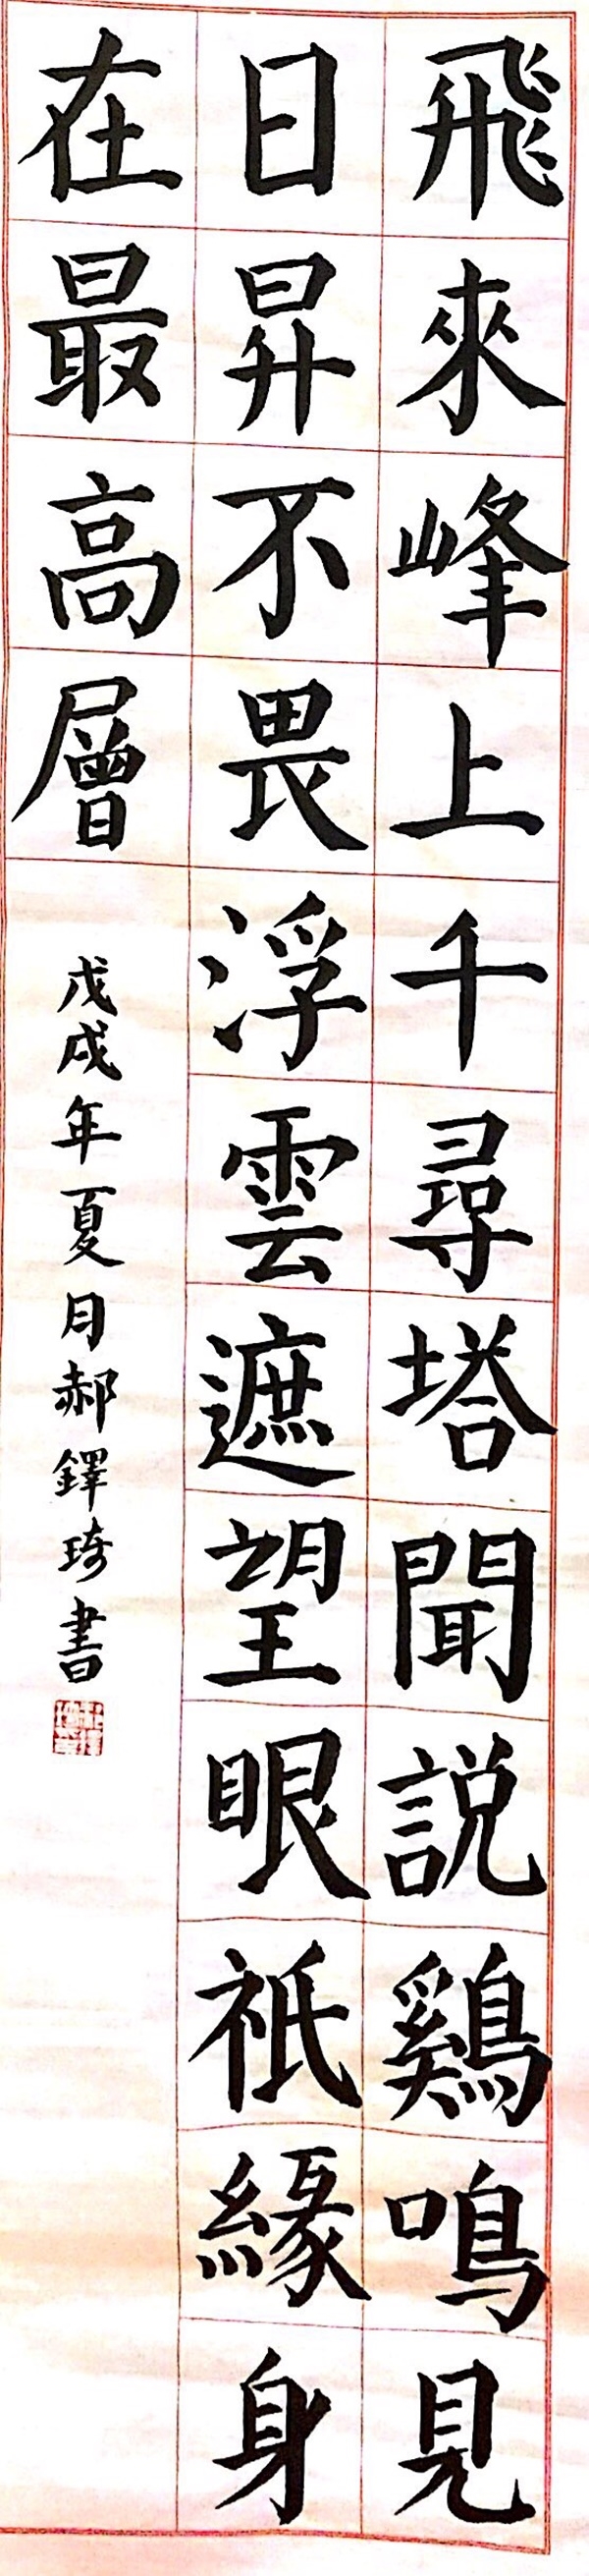 飛來峰上千尋塔聞説鷄鳴見
日昇不畏浮雲遮望眼祇緣身
在最高層
戊戌年夏月郝鐸琦書